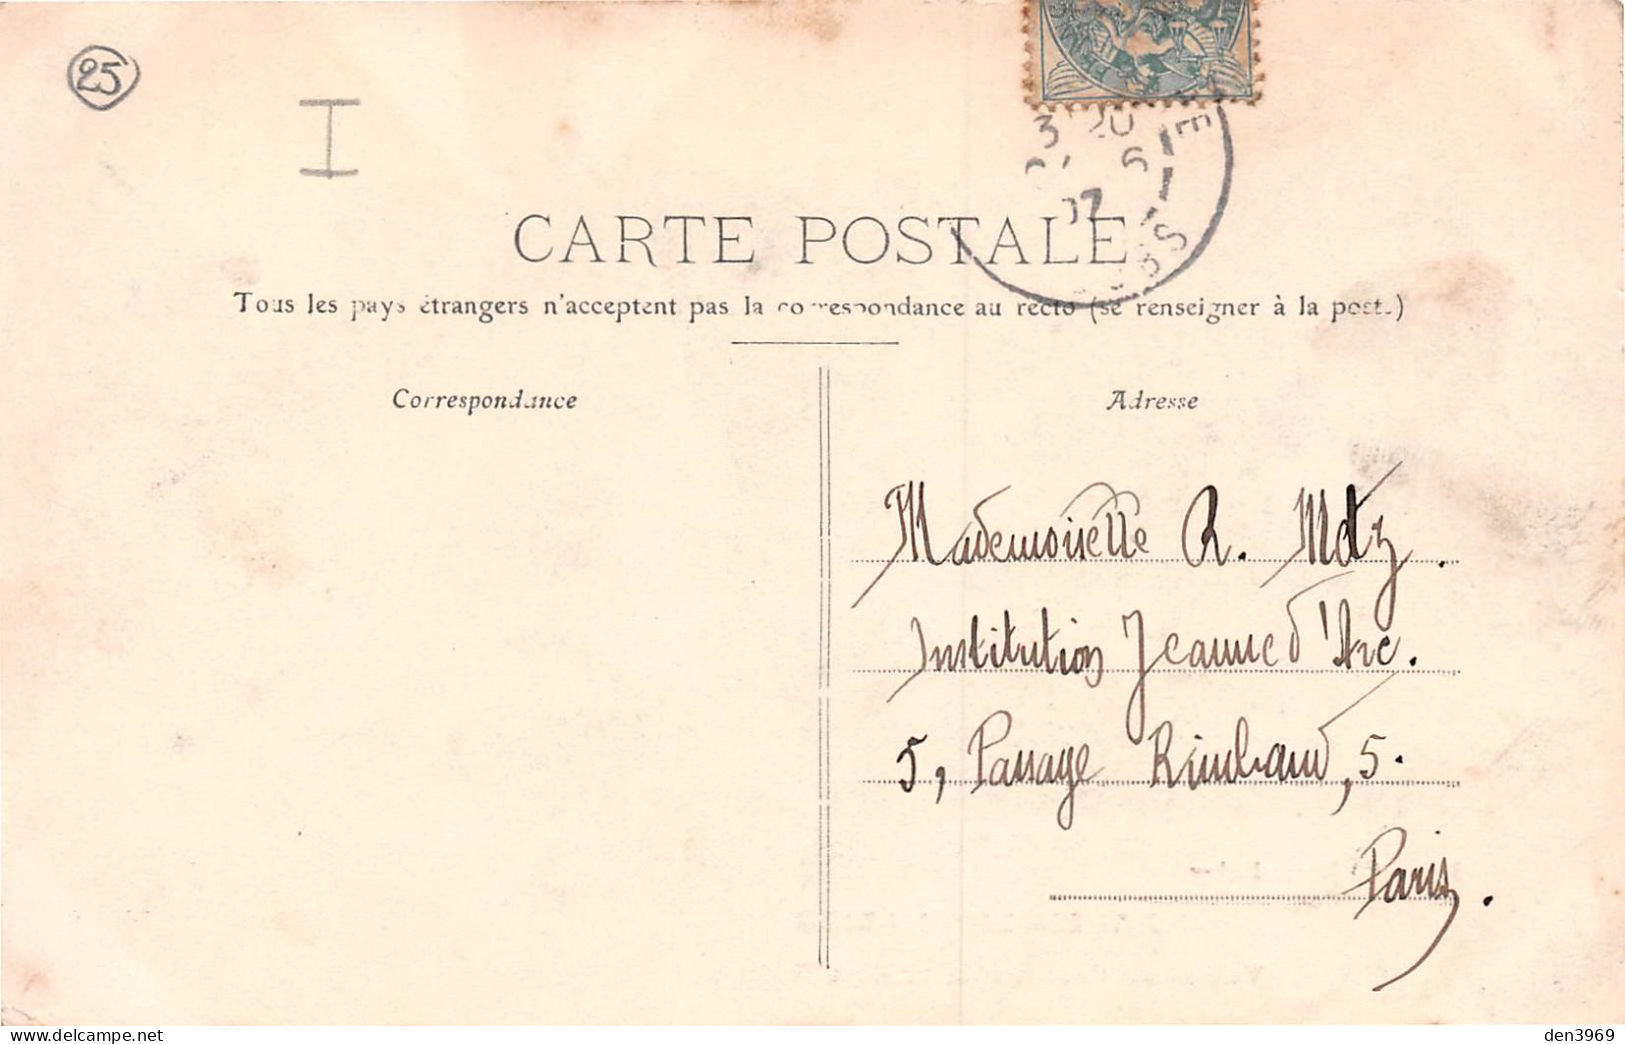 25
I
3 20
6
07
CARTE POSTALE
Tous les pays étrangers n'acceptent pas la correspondance au recto (se renseigner à la poste)
Correspondance
Adresse
Mademoiselle R. Metz.
Institution Jeanne d'Arc.
5, Passage Rimbaud, 5.
Paris.
den3969